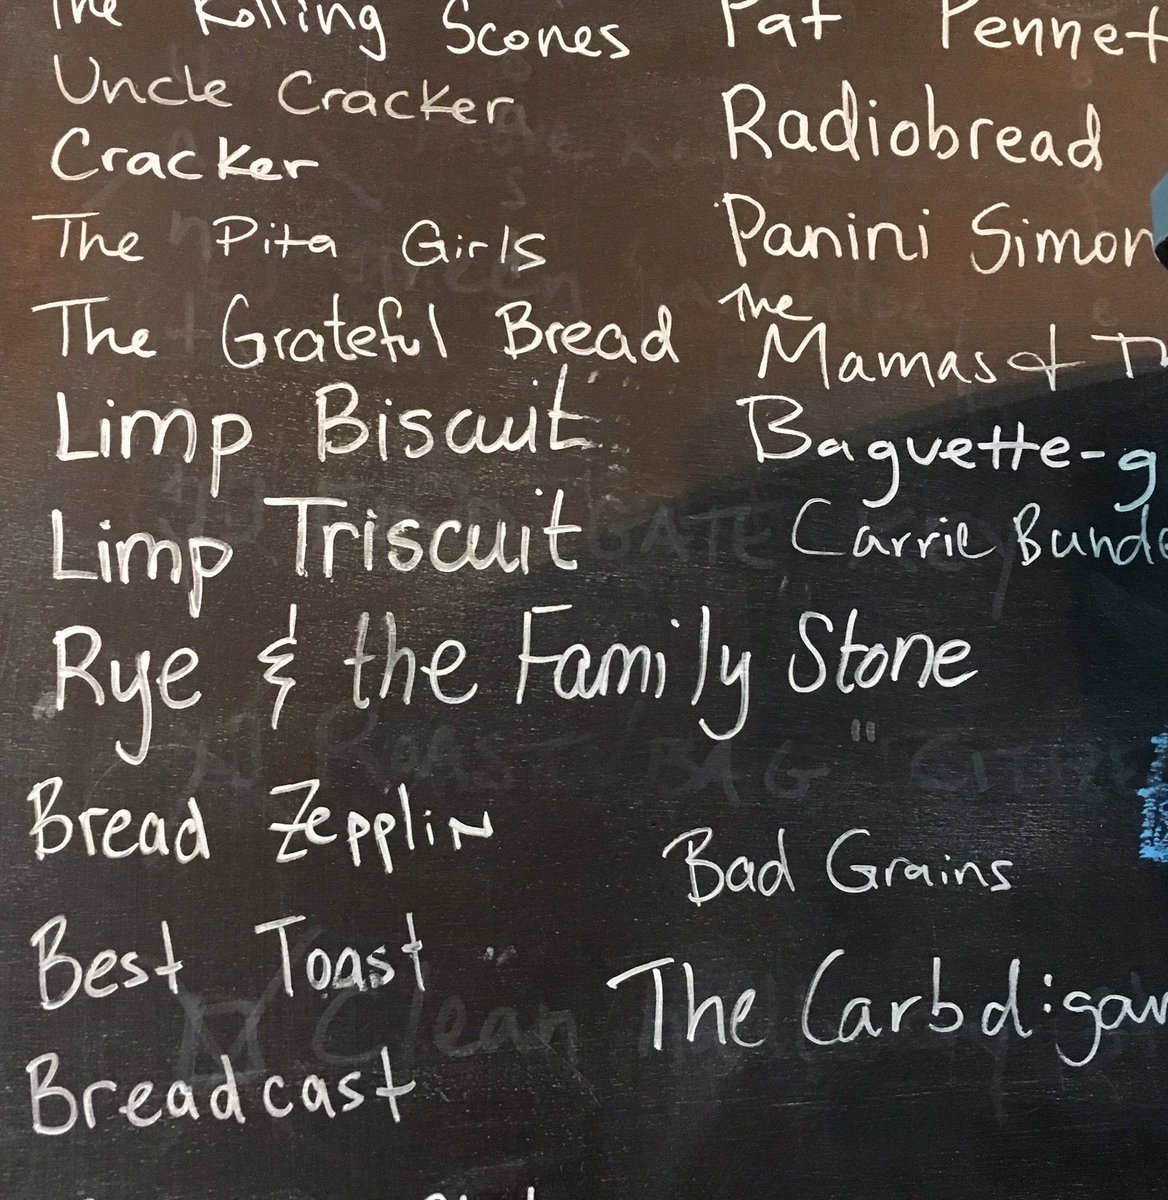 The Rolling Scones
Uncle Cracker
Cracker
The Pita Girls
The Grateful Bread
Limp Biscuit
Limp Triscuit
Rye & the Family Stone
Bread Zepplin
Best Toast
Breadcast
Pat Pennet
Radiobread
Panini Simon
The Mamas &
Baguette-g
Carrie Bunde
Bad Grains
The Carbdigan